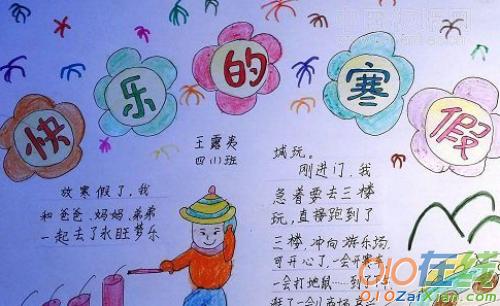 快乐的寒假
王露
四(1)班
放寒假了,我
和爸爸、妈妈、弟弟
一起去了永旺梦乐
城玩。
刚进门,我
急着要去三楼
玩,直接跑到了
三楼,冲向游乐场,
可开心了,一会开赛车
一会打地鼠
010在线
010ZaiXian.com